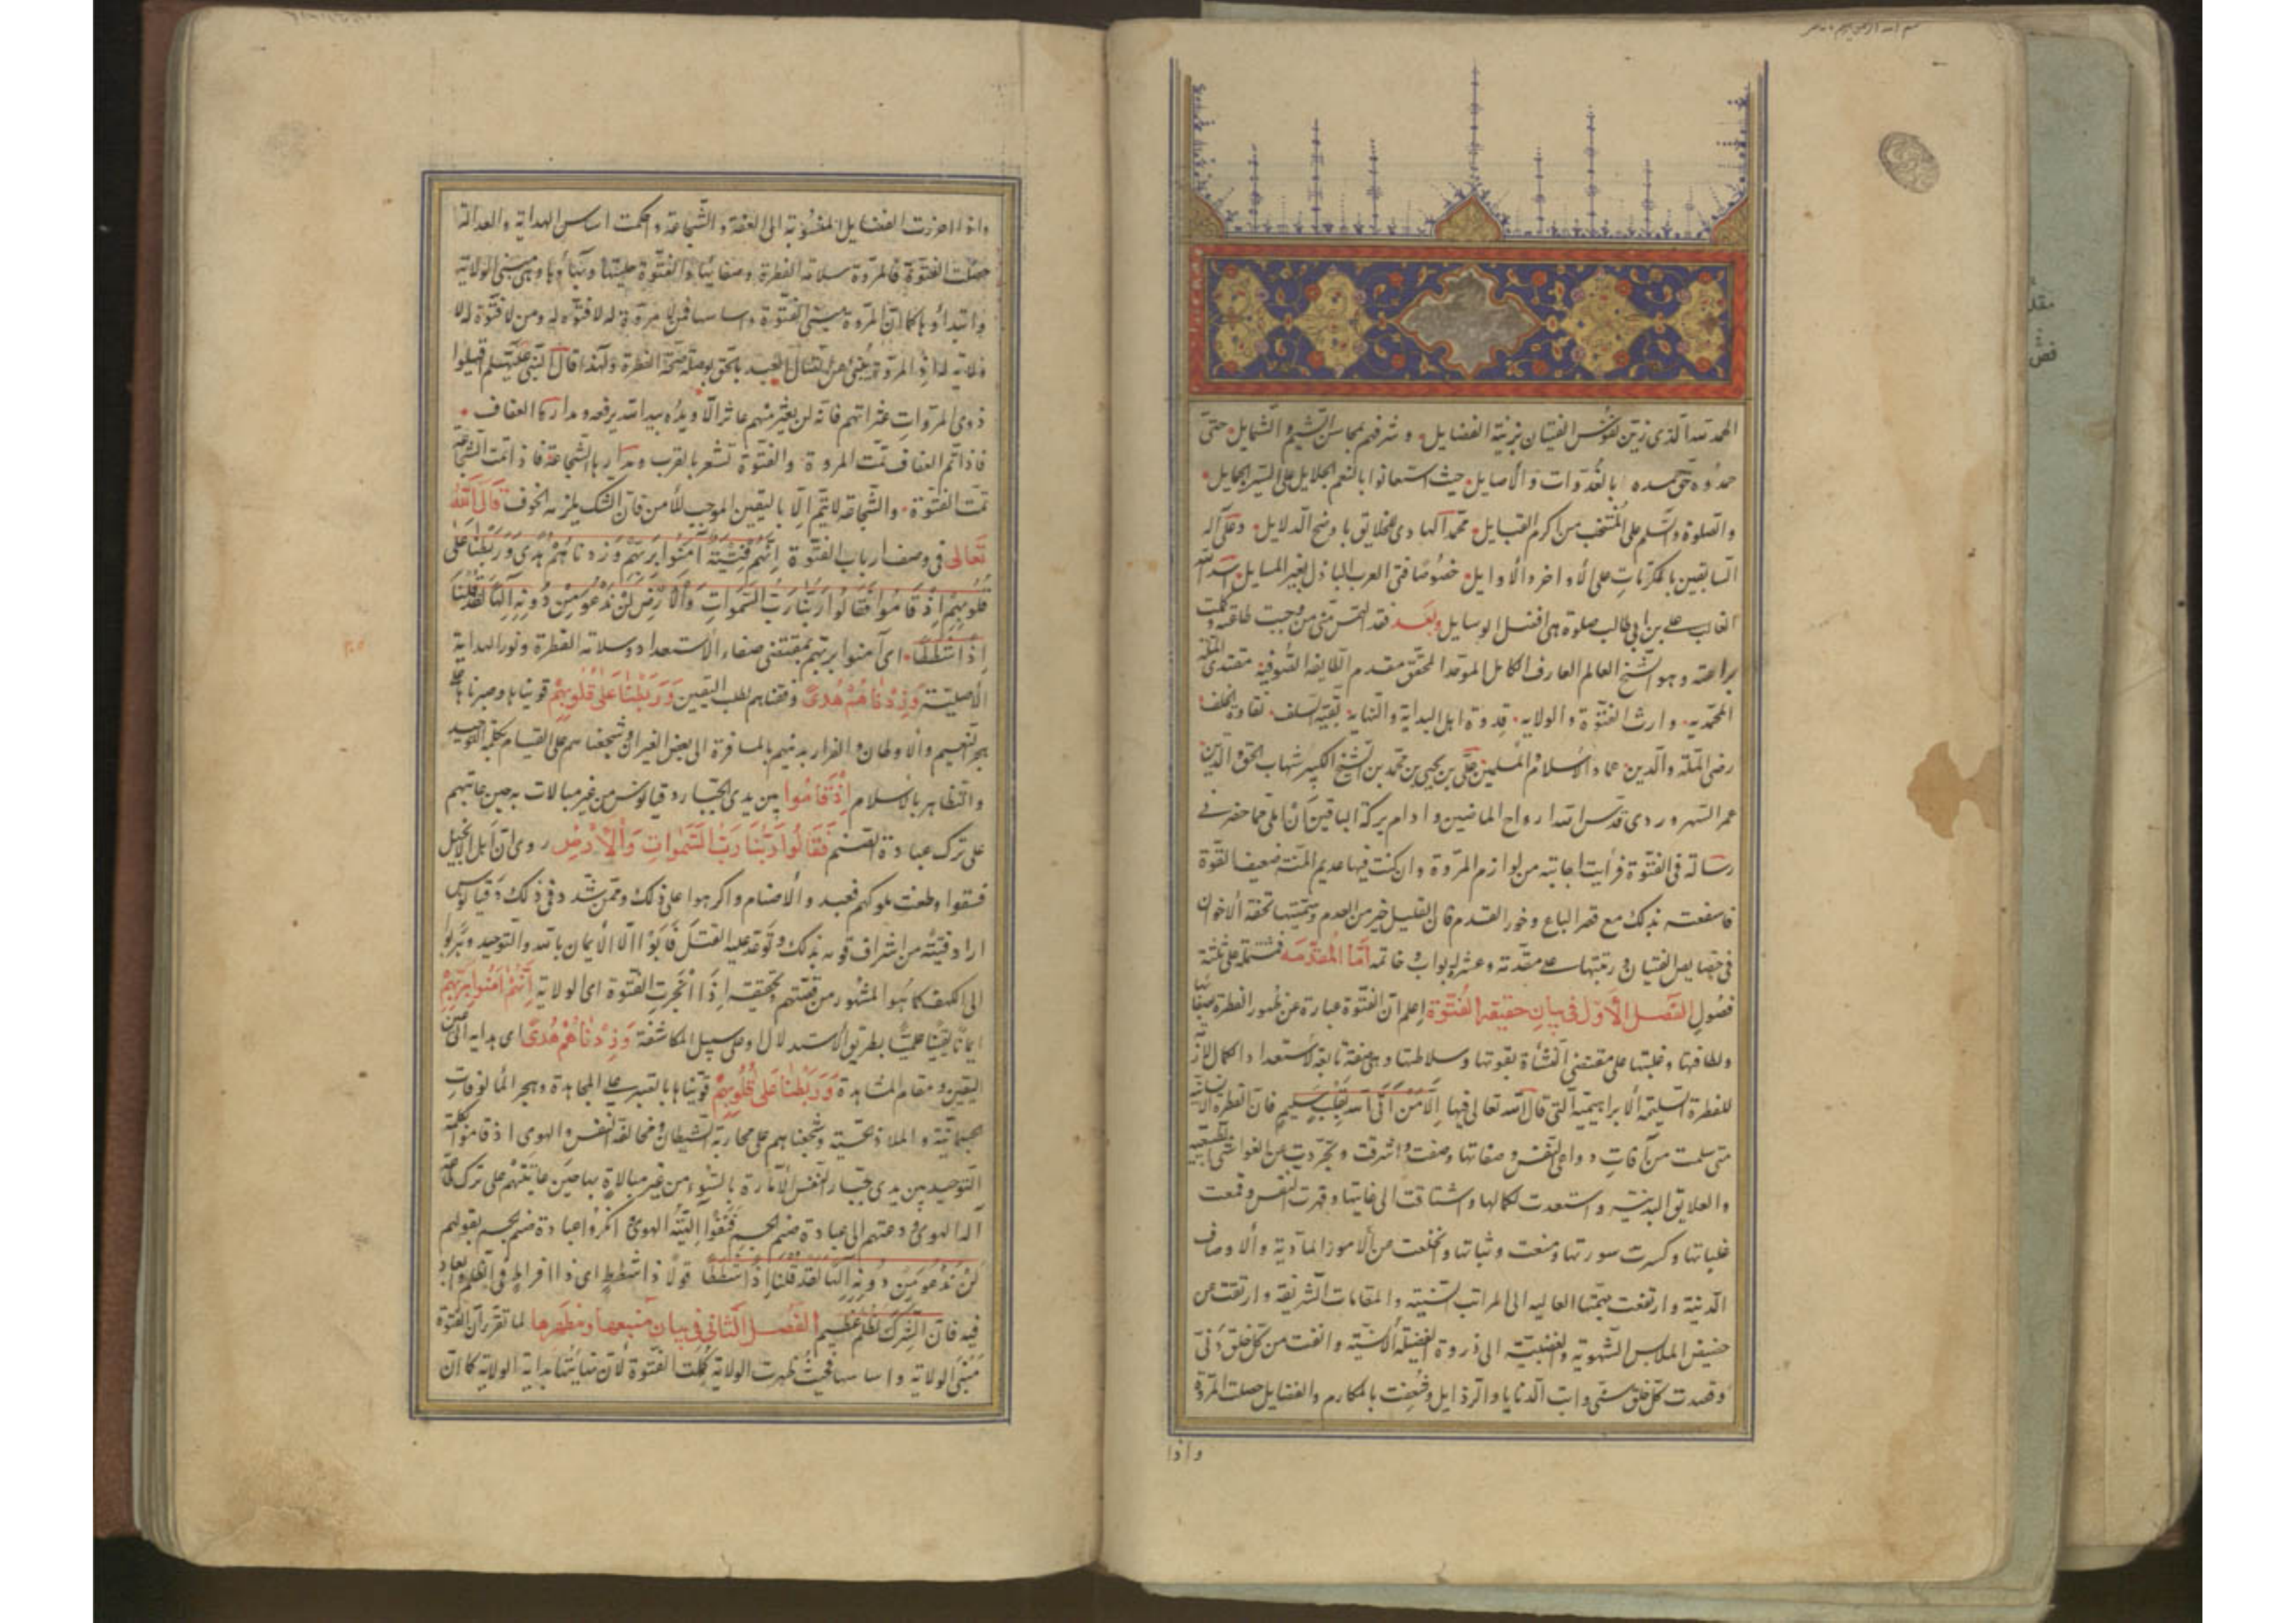 الحمد لله الذی زین نفوس الفتیان بزینة الفضایل و شرفهم بمحاسن الشیم و الشمایل حتی
حمدوه حق حمده بالغدوات و الأصایل حیث استعانوا بالنعم الجلایل علی السیر الجمایل
والصلوة والسلم علی المنتخب من اکرم القبایل محمد الهادی للخلایق باوضح الدلایل وعلی آله
السابقین بالمکرمات علی الأواخر والأوایل خصوصا فتی العرب الباذل لغیر المسایل اسد الله
الغالب علی بن ابی طالب صلوة هی افضل الوسایل وبعد فقد التمس منی من وجبت طاعته و
براعته وهو الشیخ العالم العارف الکامل الموحد المحقق مقدم الطایفة الصوفیة مقتدی الملة
المحمدیه وارث الفتوة والولایه قدوة اهل البدایة والنهایة بقیة السلف نقاوة الخلف
رضی الملة والدین عماد الاسلام والمسلمین علی بن یحیی بن محمد بن الشیخ الکبیر شهاب الحق والدین
عمر السهروردی قدس الله ارواح الماضین وادام برکة الباقین ان املی ما حضر فی
رسالة فی الفتوة فرأیت اجابته من لوازم المروة وان کنت فیها عدیم المنة ضعیف القوة
فاسعفته بذلک مع قصر الباع وخور القدم فان القلیل خیر من العدم وسمیتها تحفة الاخوان
فی خصایص الفتیان ورتبتها علی مقدمة وعشرة ابواب وخاتمه اما المقدمه فمشتملة علی ثلثة
فصول الفصل الأول فی بیان حقیقة الفتوة اعلم ان الفتوة عبارة عن ظهور الفطرة وصفائها
ولطافتها وغلبتها علی مقتضی النشأة بقوتها وسلاطتها وهی صفة تابعة لاستعداد الکمال لازمة
للفطرة السلیمة الابراهیمیة التی قال الله تعالی فیها الا من اتی الله بقلب سلیم فان الفطرة الانسانیة
متی سلمت من آفات دواعی النفس وصفاتها وصفت واشرقت وتجردت عن الغواشی الطبیعیة
والعلایق البدنیة واستعدت لکمالها واشتاقت الی غایتها وقهرت النفس وقمعت
غلباتها وکسرت سورتها ومنعت وثباتها وانخلعت من الأمور المادیة والأوصاف
الدنیة وارتفعت بهمتها العالیه الی المراتب السنیة والمقامات الشریفة وارتقت عن
حضیض الملابس الشهویة والغضبیة الی ذروة الفضیلة الانسیة وانفت من کل خلق دنی
وقصدت کل خلق سنی وابت الدنایا والرذایل وشعفت بالمکارم والفضایل حصلت المروة
واذا
واذا احرزت الفضایل المنسوبة الی العفة والشجاعة واحکمت اساس الهدایة والعدالة
حصلت الفتوة فالمروة سلامة الفطرة وصفائها والفتوة حلیتها وبهاؤها وهی مبنی الولایة
وابتداؤها کما ان المروة مبنی الفتوة واساسها فمن لا مروة له لا فتوة له ومن لا فتوة له لا
ولایة له اذ المروة ینبئ عن اتصال العبد بالحق بوصلة صحة الفطرة ولهذا قال النبی علیه السلم اقیلوا
ذوی المروات عثراتهم فانه لن یعثر منهم عاثر الا ویده بید الله یرفعه ومدارها العفاف
فاذا تم العفاف تمت المروة والفتوة تشعر بالقرب ومدارها الشجاعة فاذا تمت الشجاعة
تمت الفتوة والشجاعة لا یتم الا بالیقین الموجب للأمن فان الشک یلزمه الخوف قال الله
تعالی فی وصف ارباب الفتوة انهم فتیة آمنوا بربهم وزدناهم هدی وربطنا علی
قلوبهم اذ قاموا فقالوا ربنا رب السموات والأرض لن ندعو من دونه الها لقد قلنا
اذا شططا ای آمنوا بربهم بمقتضی صفاء الاستعداد وسلامة الفطرة ونور الهدایة
الأصلیة وزدناهم هدی وفقناهم لطلب الیقین وربطنا علی قلوبهم قویناها وصبرناها علی
هجر النعیم والاوطان والفرار بدینهم بالمسافرة الی بعض الغیران وشجعناهم علی القیام بکلمة التوحید
والتظاهر بالاسلام اذ قاموا بین یدی الجبار دقیانوس من غیر مبالات به حین عاتبهم
علی ترک عبادة الصنم فقالوا ربنا رب السموات والأرض روی ان اهل الانجیل
فسقوا وطغت ملوکهم فعبدوا الاصنام واکرهوا علی ذلک وممن شدد فی ذلک دقیانوس
اراد فتیة من اشراف قومه بذلک وتوعد علیه القتل فابوا الا الایمان بالله والتوحید وهربوا
الی الکهف کما هو المشهور من قصتهم وتحقیقه اذا انجرت الفتوة الی الولایة انهم آمنوا بربهم
ایمانا یقینا علمیا بطریق الاستدلال او علی سبیل المکاشفة وزدناهم هدی ای هدایة الی عین
الیقین ومقام المشاهدة وربطنا علی قلوبهم قویناها بالصبر علی المجاهدة وهجر المألوفات
الجسمانیة والملاذ الحسیة وشجعناهم علی محاربة الشیطان ومخالفة النفس والهوی اذ قاموا بکلمة
التوحید بین یدی جبار النفس الأمارة بالسوء من غیر مبالاة بها حین عاتبتهم علی ترک
آله الهوی ودعتهم الی عبادة صنم الجسم فنفوا الهیة الهوی وانکروا عبادة صنم الجسم بقولهم
لن ندعو من دونه الها لقد قلنا اذا شططا قولا ذا شطط ای ذا افراط فی الظلم
فیه فان الشرک لظلم عظیم الفصل الثانی فی بیان منبعها ومظهرها لما تقرر ان الفتوة
مبنی الولایة واساسها فحیث ظهرت الولایة کملت الفتوة لان نهایتها بدایة الولایة کما ان